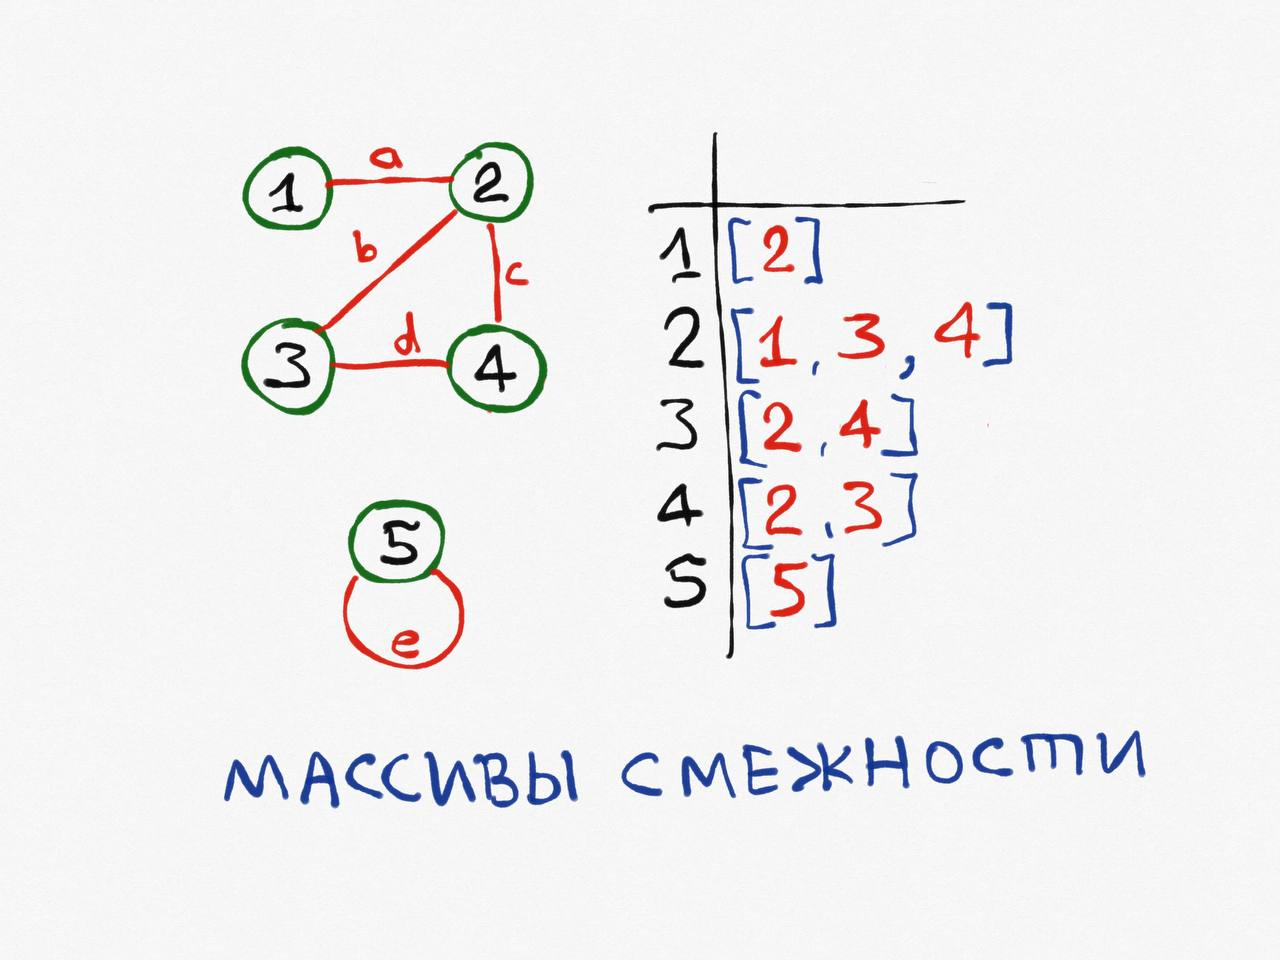 a
1
2
b
c
3
d
4
5
e
1 [2]
2 [1, 3, 4]
3 [2, 4]
4 [2, 3]
5 [5]
МАССИВЫ СМЕЖНОСТИ